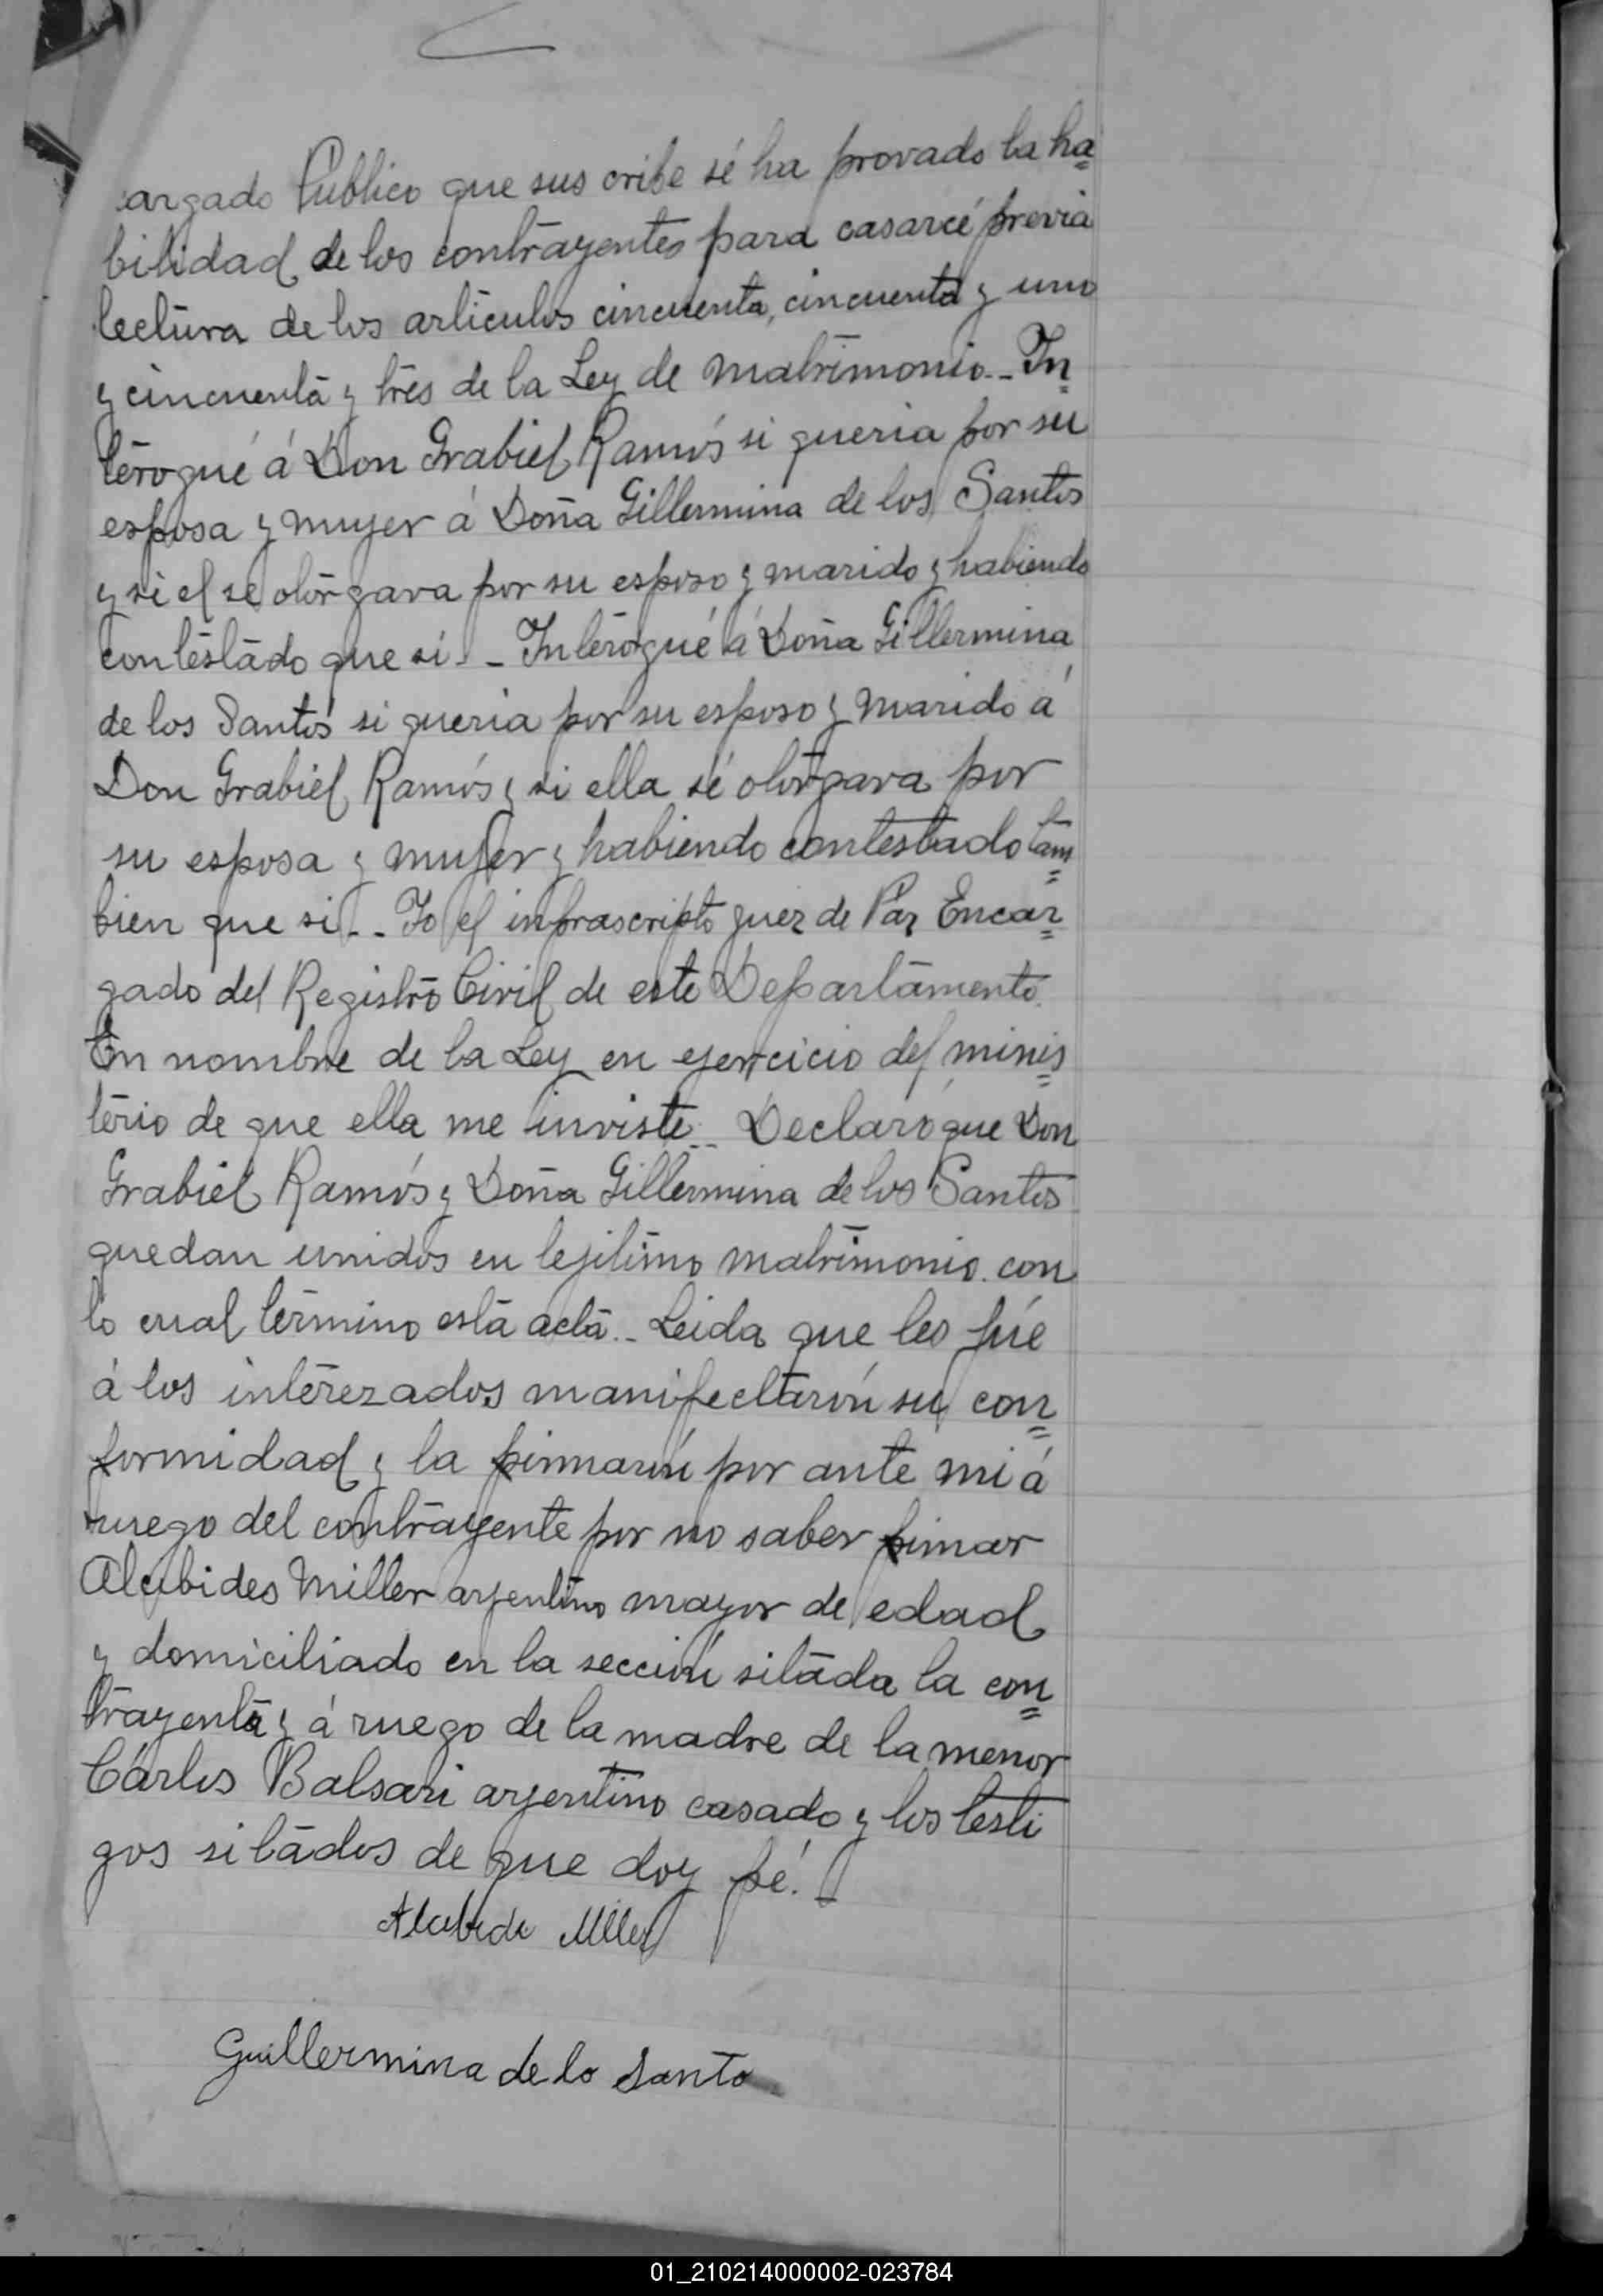 cargado Público que sus cribe sé ha provado la ha=
bilidad de los contrayentes para casarcé previa
lectura de los articulos cincuenta, cincuenta y uno
y cincuenta y tres de la Ley de matrimonio.- In=
terogué á Don Grabiel Ramós si queria por su
esposa y muyer á Doña Gillermina de los Santos
y si el se otorgava por su esposo y marido y habiendo
contestado que si.- Interogué á Doña Gillermina
de los Santos si queria por su esposo y marido á
Don Grabiel Ramós y si ella sé otorgava por
su esposa y mujer y habiendo contestado tam=
bien que si.- Yo el infrascripto guez de Paz Encar=
gado del Registro Civil de este Departamento.
En nombre de la Ley en ejercicio del minis=
terio de que ella me inviste.- Declaro que Don
Grabiel Ramós y Doña Gillermina de los Santos
quedan unidos en lejitimo matrimonio. con
lo cual términо esta acta.- Leida que les fúe
á los interezados manifectarón su con=
formidad y la firmarón por ante mi á
ruego del contrayente por no saber fimar
Alcibides Miller arjentino mayor de edad
y domiciliado en la sección sitada la con=
trayenta y á ruego de la madre de la menor
Cárlos Balsari arjentino casado y los testi
gos sitados de que doy fé.-
Guillermina de lo Santo
01_210214000002-023784